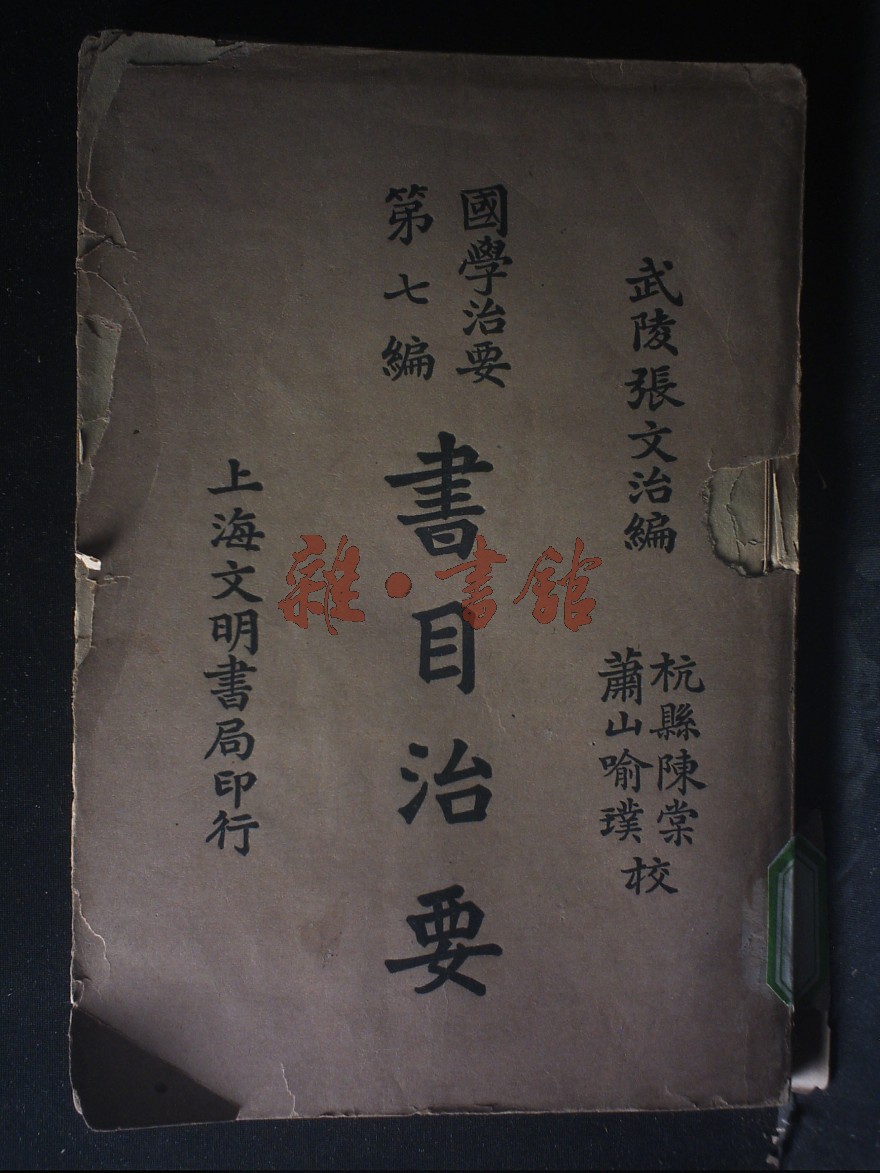 武陵張文治編
杭縣陳棠
蕭山喻璞
校
國學治要
第七編
書目治要
上海文明書局印行
雜·書館